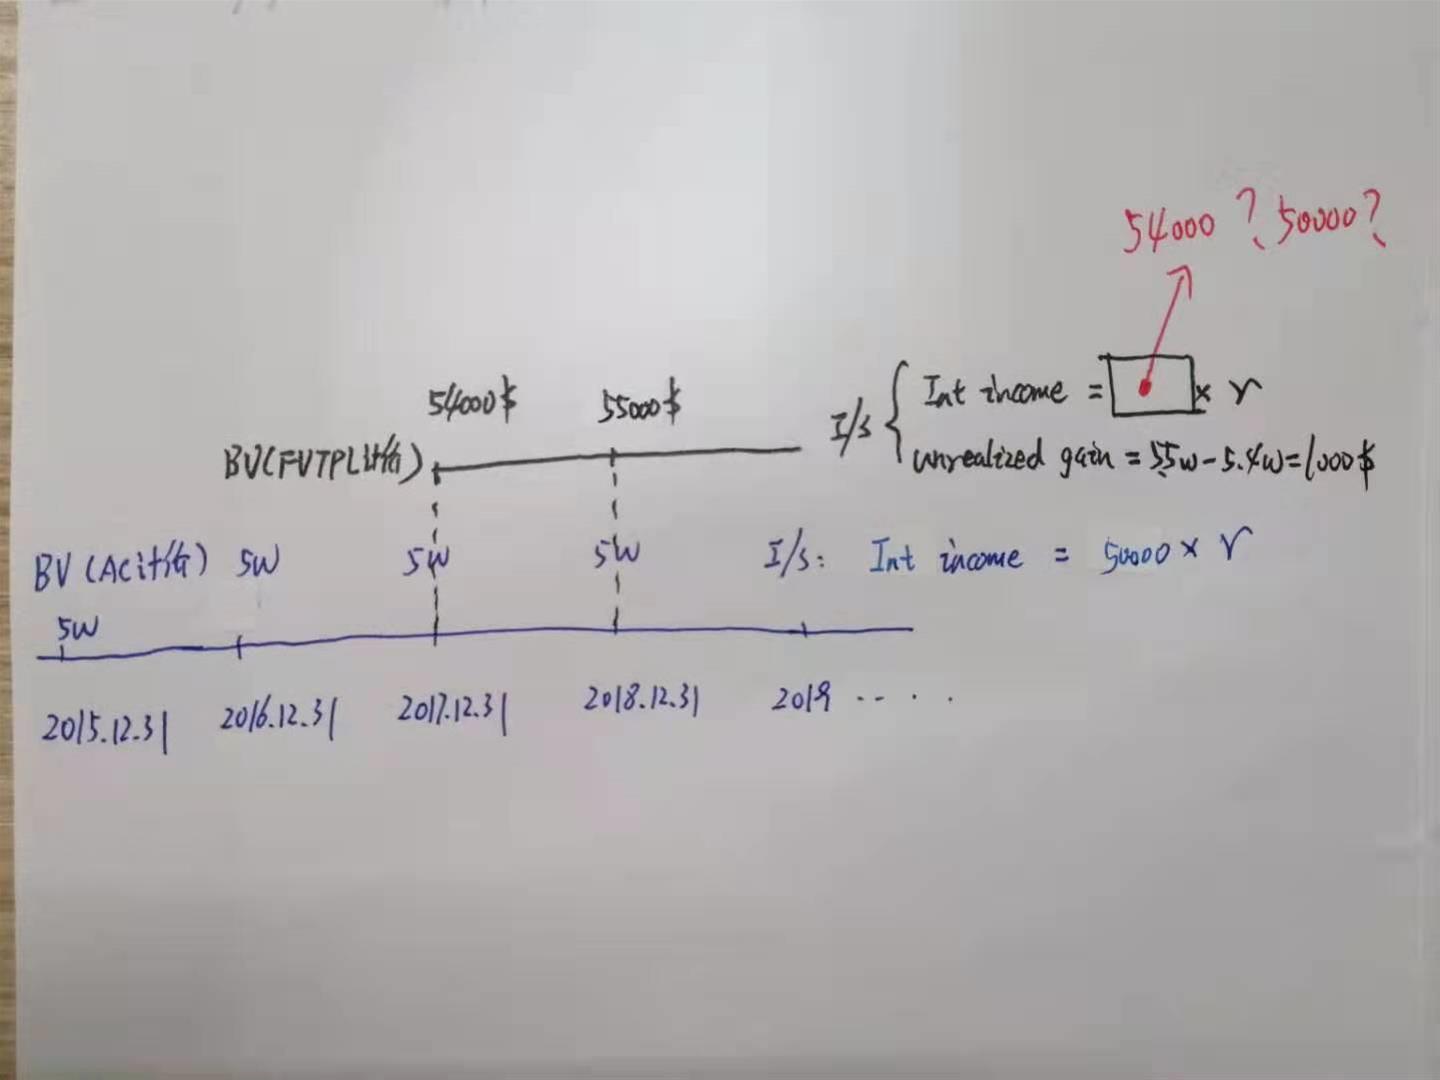 54000？、50000？、
54000$ 55000$
BV(FVTPL计价) I/S { Int income = □ × r
unrealized gain = 5.5w - 5.4w = 1000$
BV (AC计价) 5W 5W 5W I/S: Int income = 50000 × r
5W
2015.12.31 2016.12.31 2017.12.31 2018.12.31 2019 ....